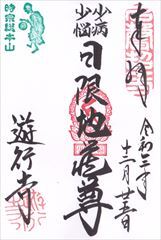 奉拝
令和三年
十二月廿三日
少病
少悩
日限地蔵尊
時宗総本山
遊行寺